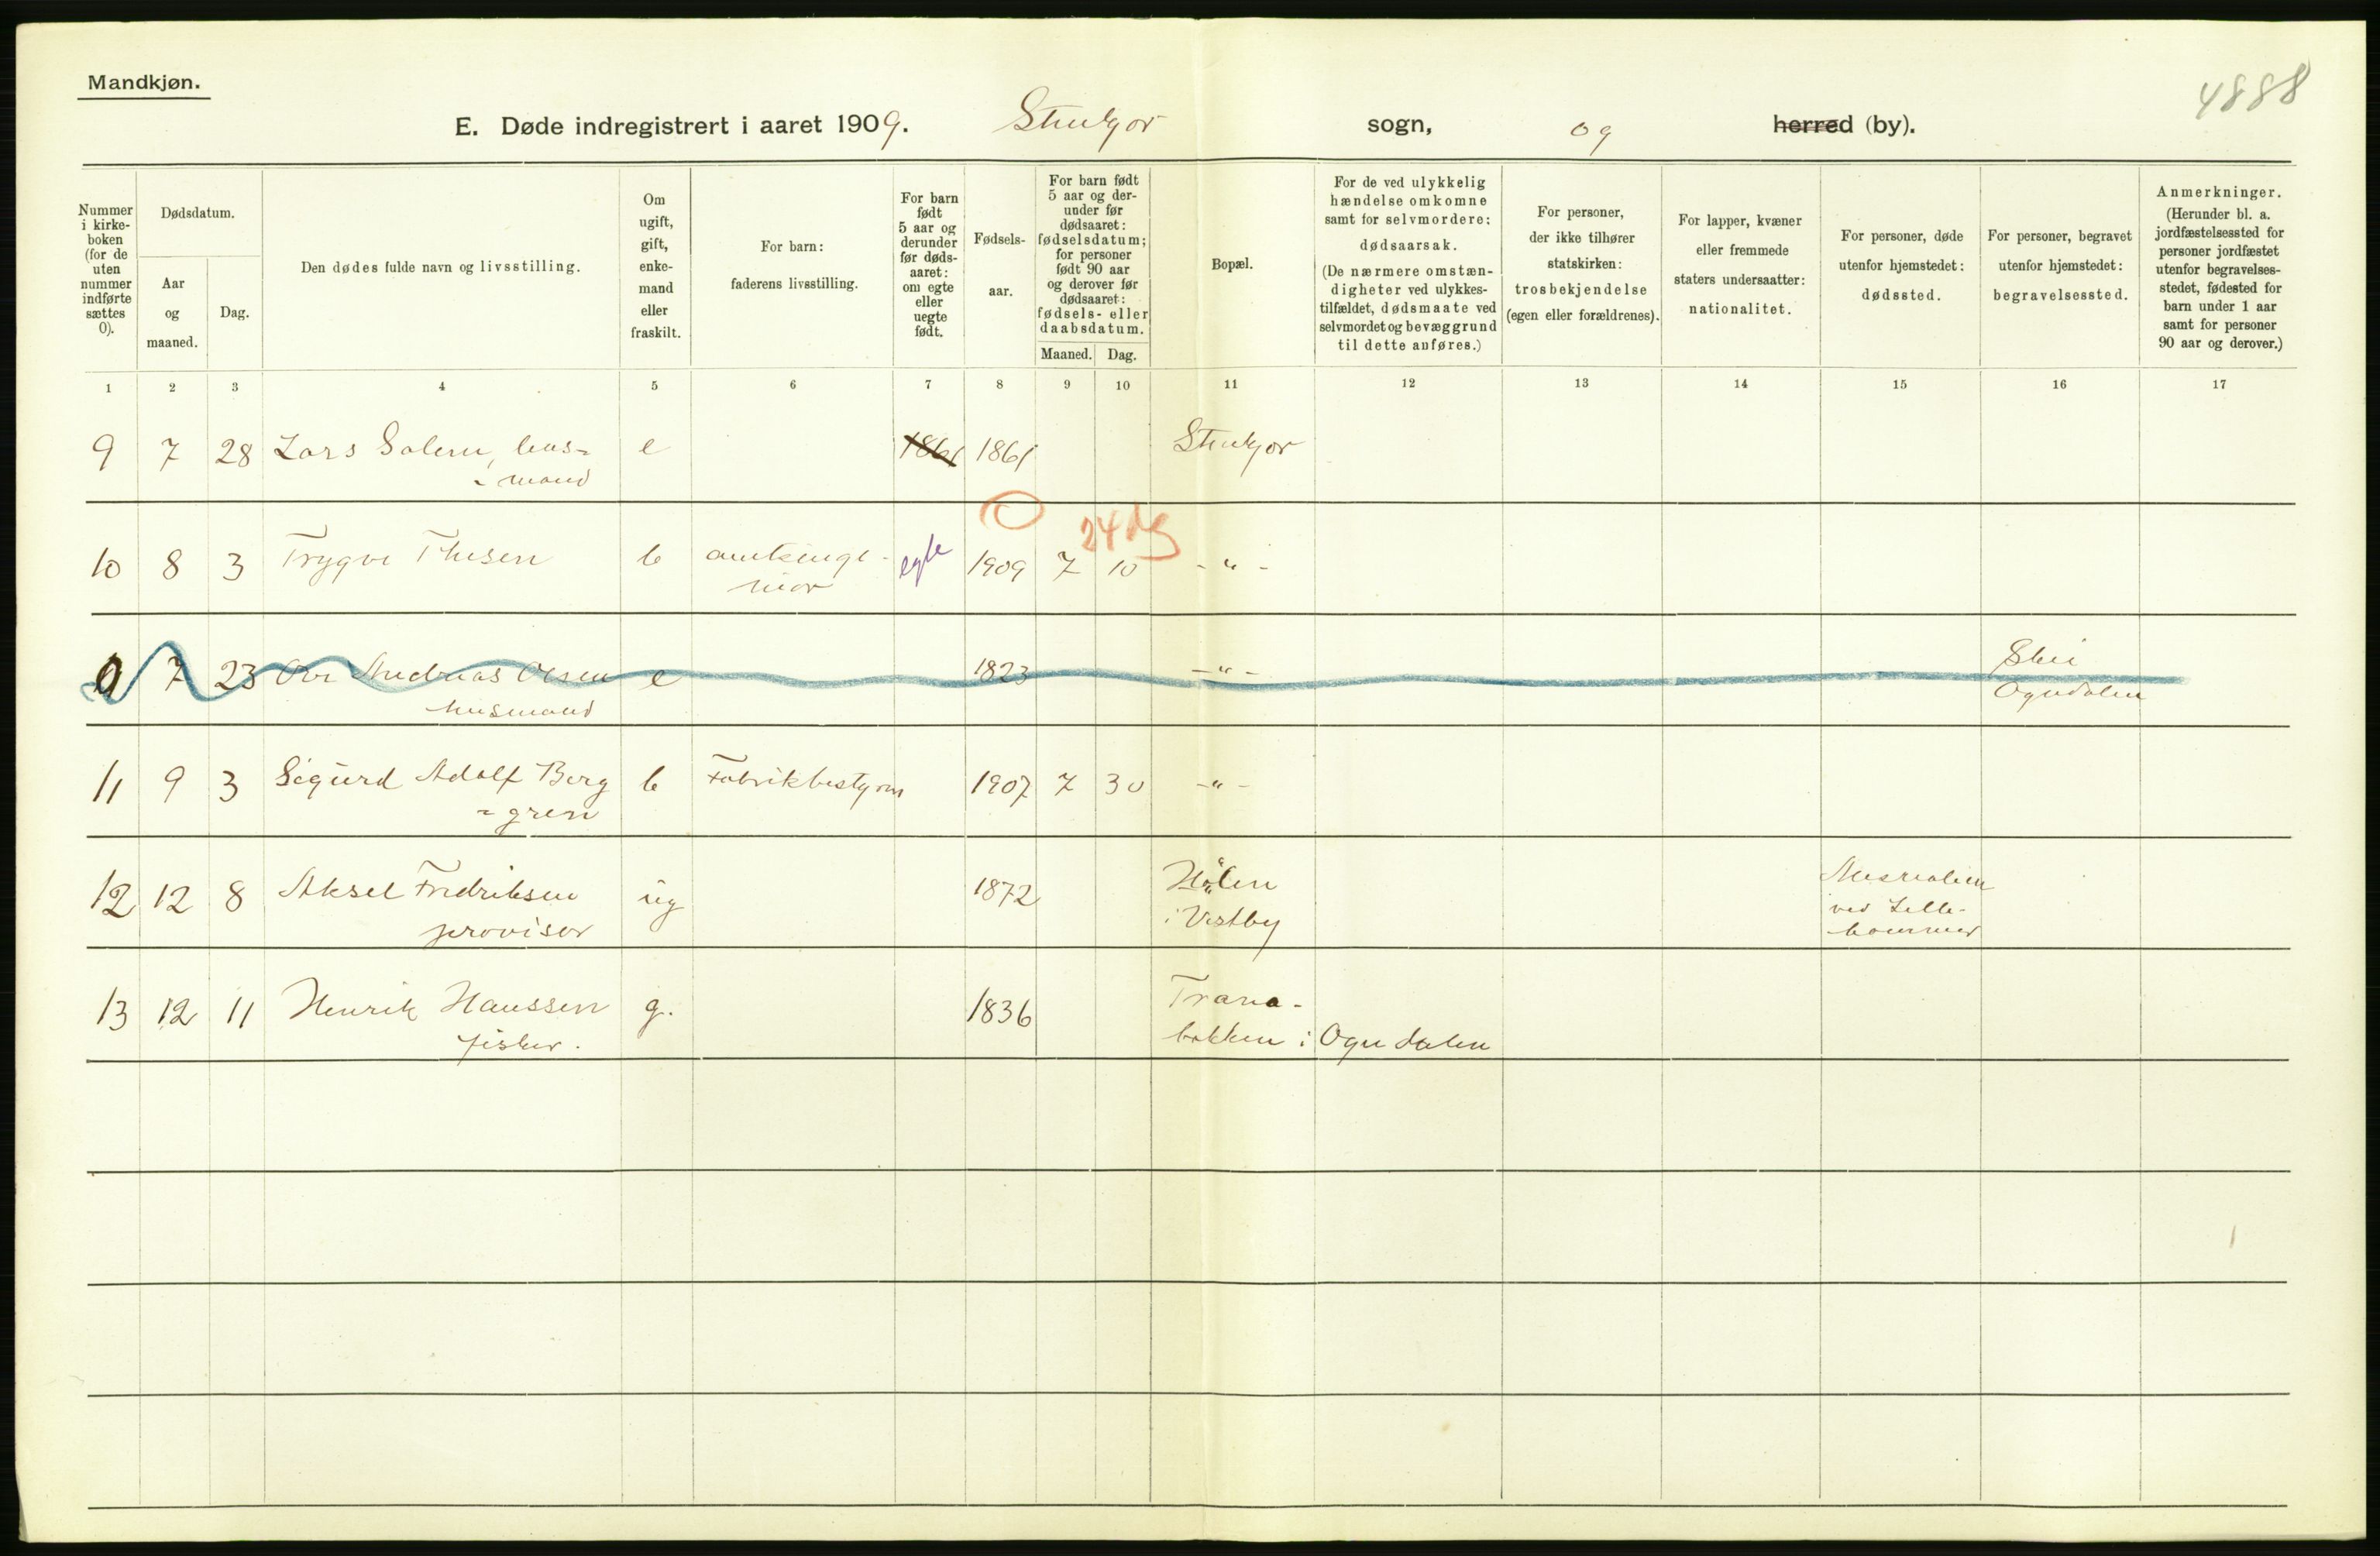 Mandkjøn.
4888
E. Døde indregistrert i aaret 1909. Stenkjær sogn, og herred (by).
Nummer i kirke-boken (for de uten nummer indførte sættes 0).
Dødsdatum.
Aar og maaned.
Dag.
Den dødes fulde navn og livsstilling.
Om ugift, gift, enke-mand eller fraskilt.
For barn: faderens livsstilling.
For barn født 5 aar og derunder før døds-aaret: om egte eller uegte født.
Fødsels-aar.
For barn født 5 aar og der-under før dødsaaret: fødselsdatum; for personer født 90 aar og derover før dødsaaret: fødsels- eller daabsdatum.
Maaned.
Dag.
Bopæl.
For de ved ulykkelig hændelse omkomne samt for selvmordere: dødsaarsak.
(De nærmere omstæn-digheter ved ulykkes-tilfældet, dødsmaate ved selvmordet og bevæggrund til dette anføres.)
For personer, der ikke tilhører statskirken: trosbekjendelse (egen eller forældrenes).
For lapper, kvæner eller fremmede staters undersaatter: nationalitet.
For personer, døde utenfor hjemstedet: dødssted.
For personer, begravet utenfor hjemstedet: begravelsessted.
Anmerkninger.
(Herunder bl. a. jordfæstelsessted for personer jordfæstet utenfor begravelses-stedet, fødested for barn under 1 aar samt for personer 90 aar og derover.)
1 2 3 4 5 6 7 8 9 10 11 12 13 14 15 16 17
9 7 28 Lars Salem, hus= e 1861 1861 Stenkjær
= mand
24 dg
10 8 3 Trygve Thesen b amtsinge- egte 1909 7 10 - " -
niør
0 7 23 Ole Andreas Olsen e 1823 - " - Skei
husmand Ogndalen
11 9 3 Sigurd Adolf Berg b Fabrikbestyrer 1907 7 30 - " -
= gren
12 12 8 Aksel Fredriksen ug 1872 Hølen Mesnalien
provisor i Vestby ved Lille-
hammer
13 12 11 Henrik Hanssen g. 1836 Trana-
fisker. bakken i Ogndalen